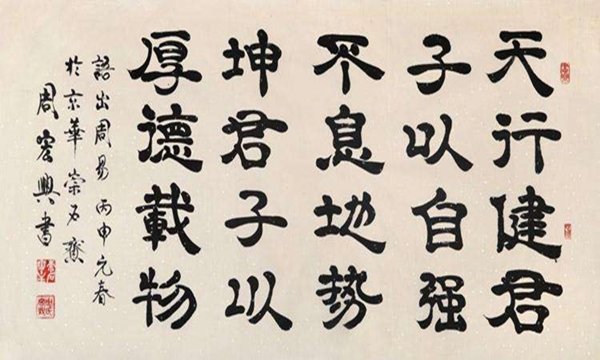 天行健君
子以自强
不息地势
坤君子以
厚德載物
語出周易丙申元春
於京華崇齋
周宏興書